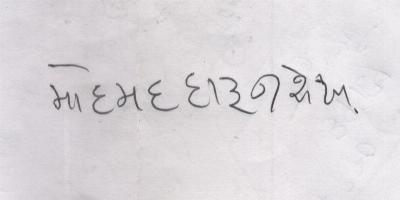 મોહમદ હારૂન શેખ.